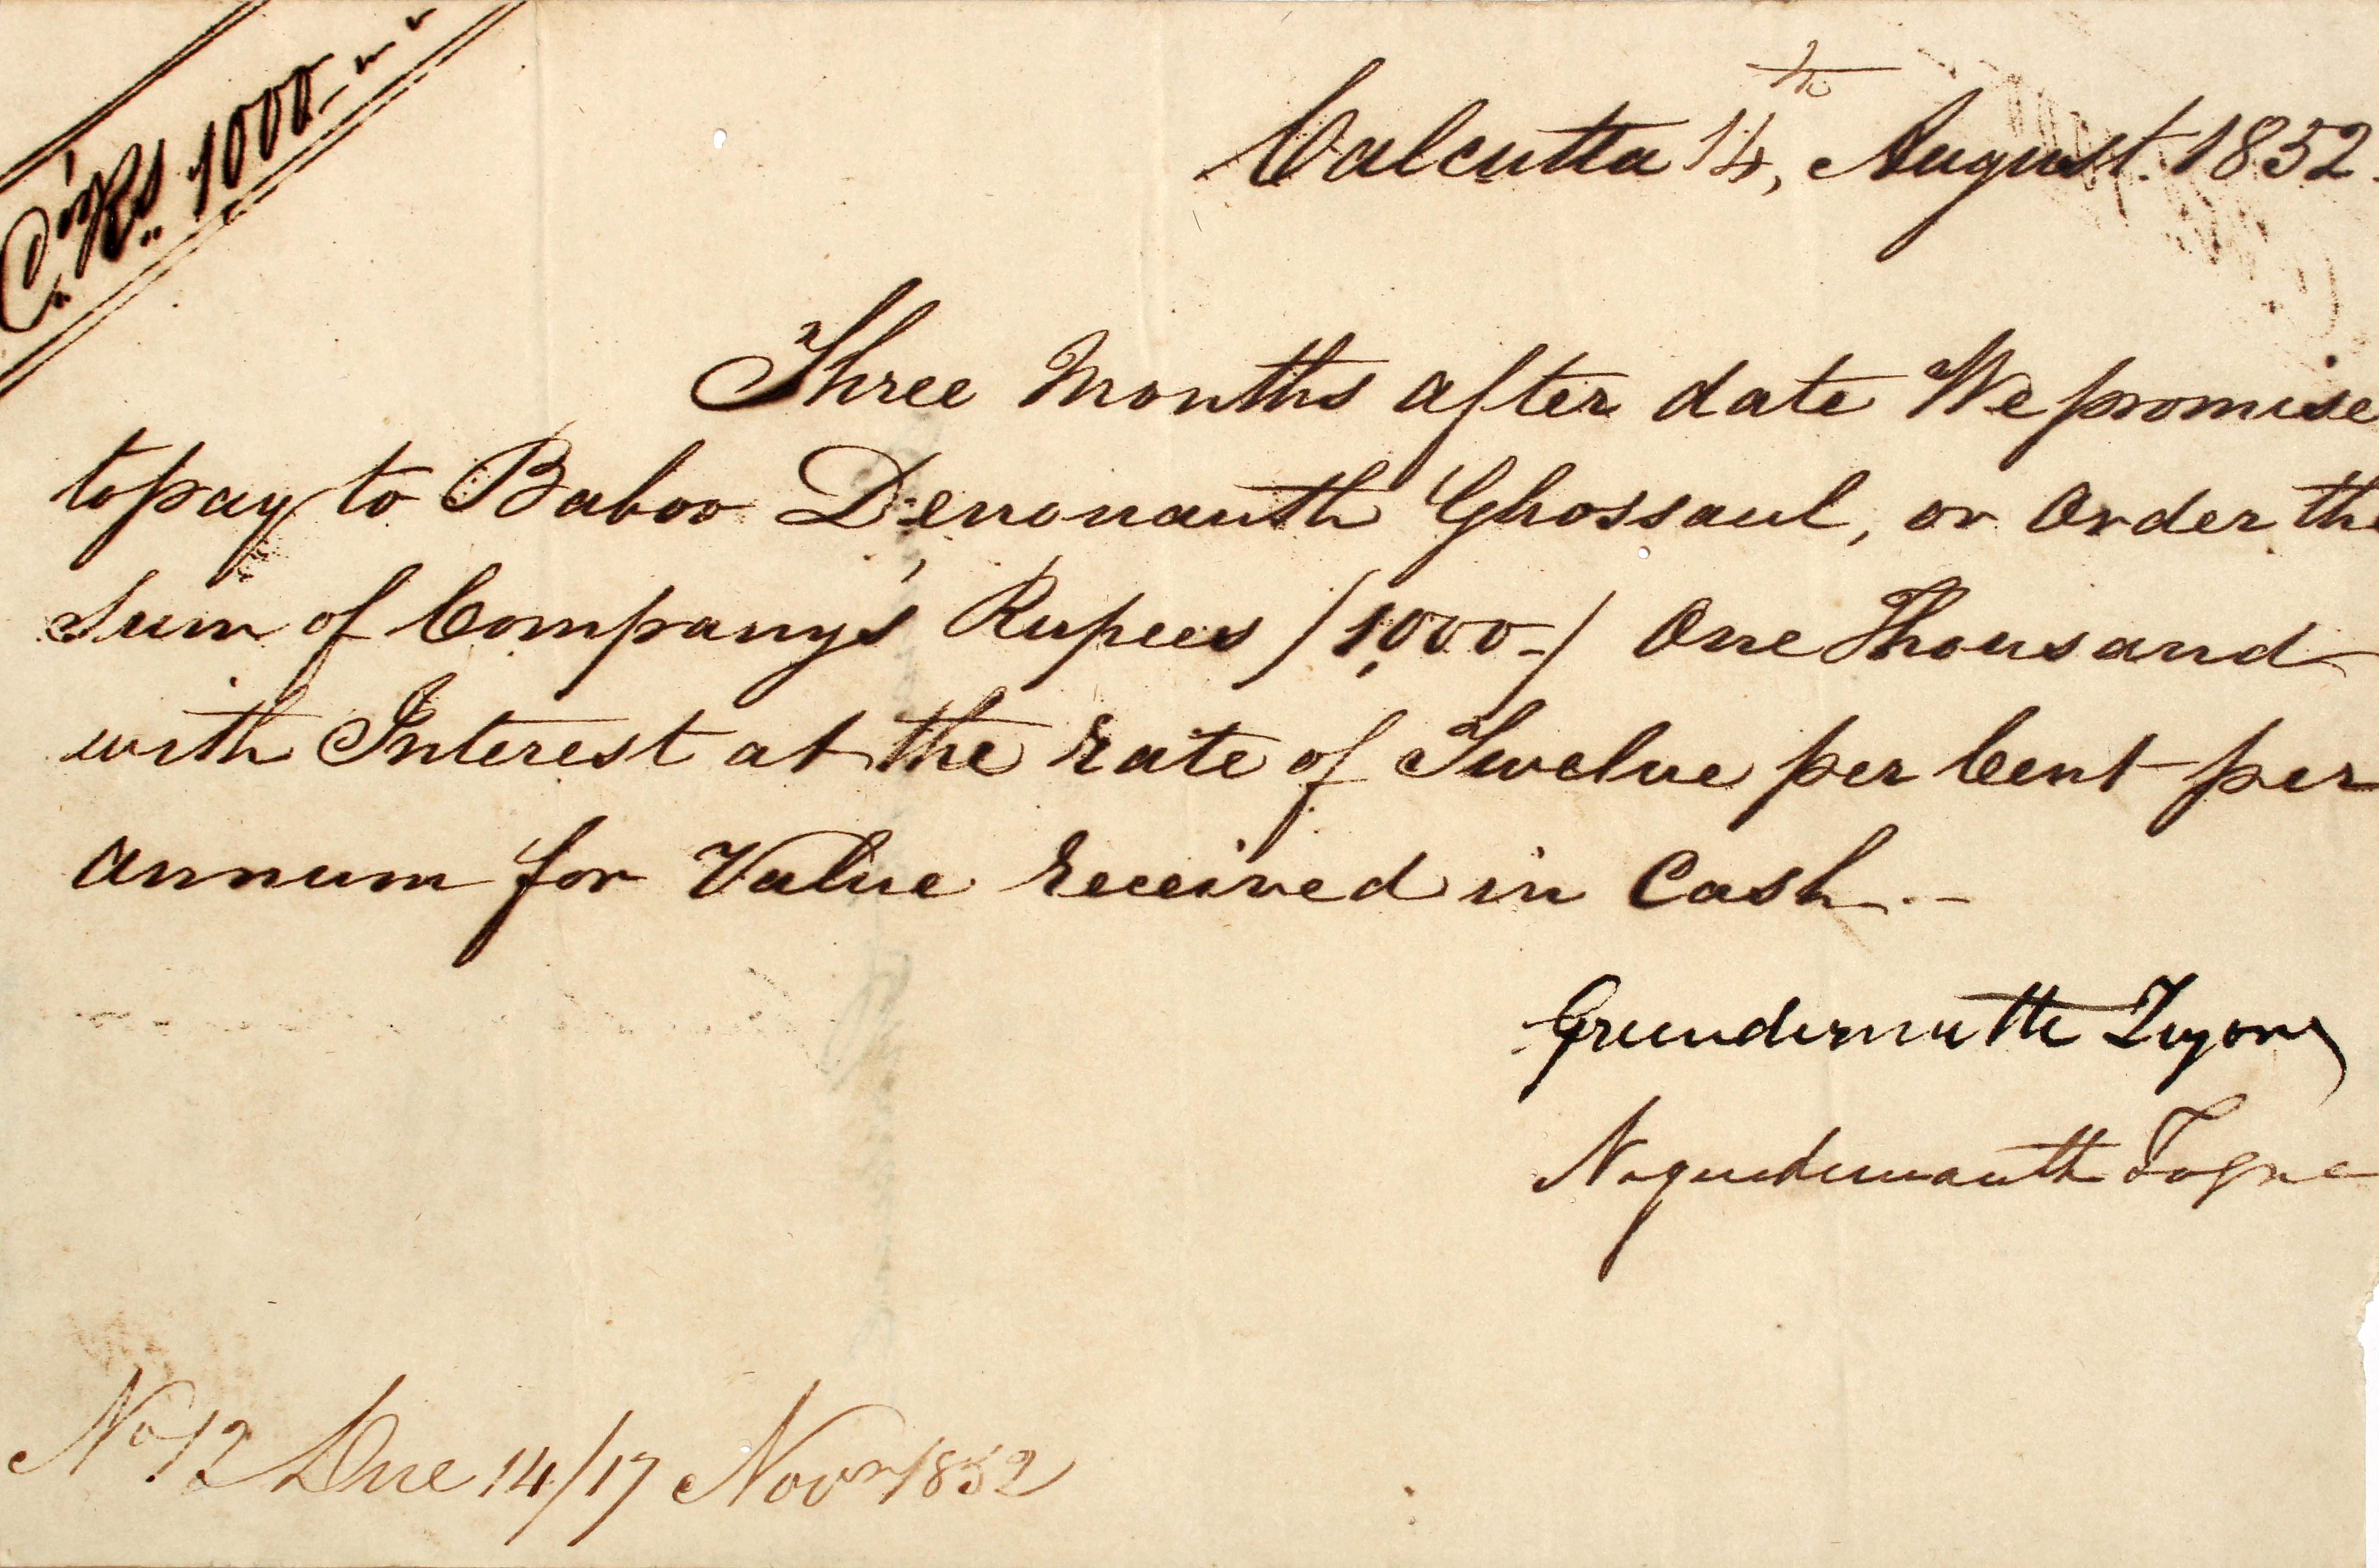 Co's Rs 1000 - " "
Calcutta 14th, August. 1852.
Three Months after date We promise
to pay to Baboo Denonauth Ghossaul, or Order the
Sum of Company's Rupees /1,000-/ One Thousand
with Interest at the rate of Twelve per Cent per
annum for Value received in Cash.-
Nogendernauth Tagore
No 12 Due 14/17 Novr 1852